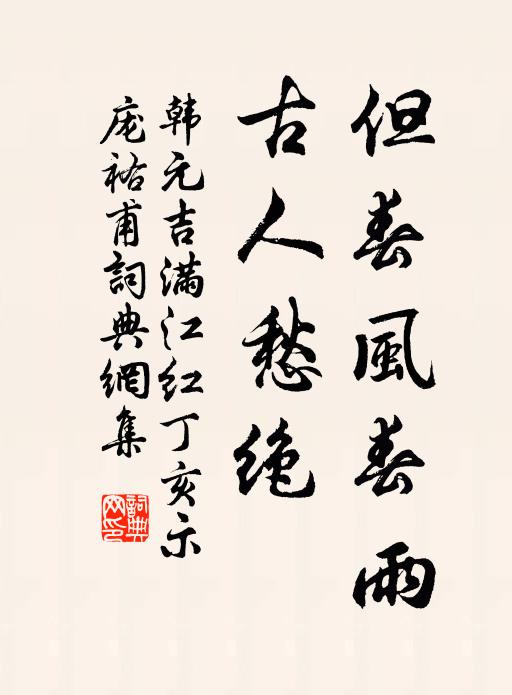 但春風春雨
古人愁绝
韩元吉满江红丁亥示
庞祐甫詞典網集
詞典
网印